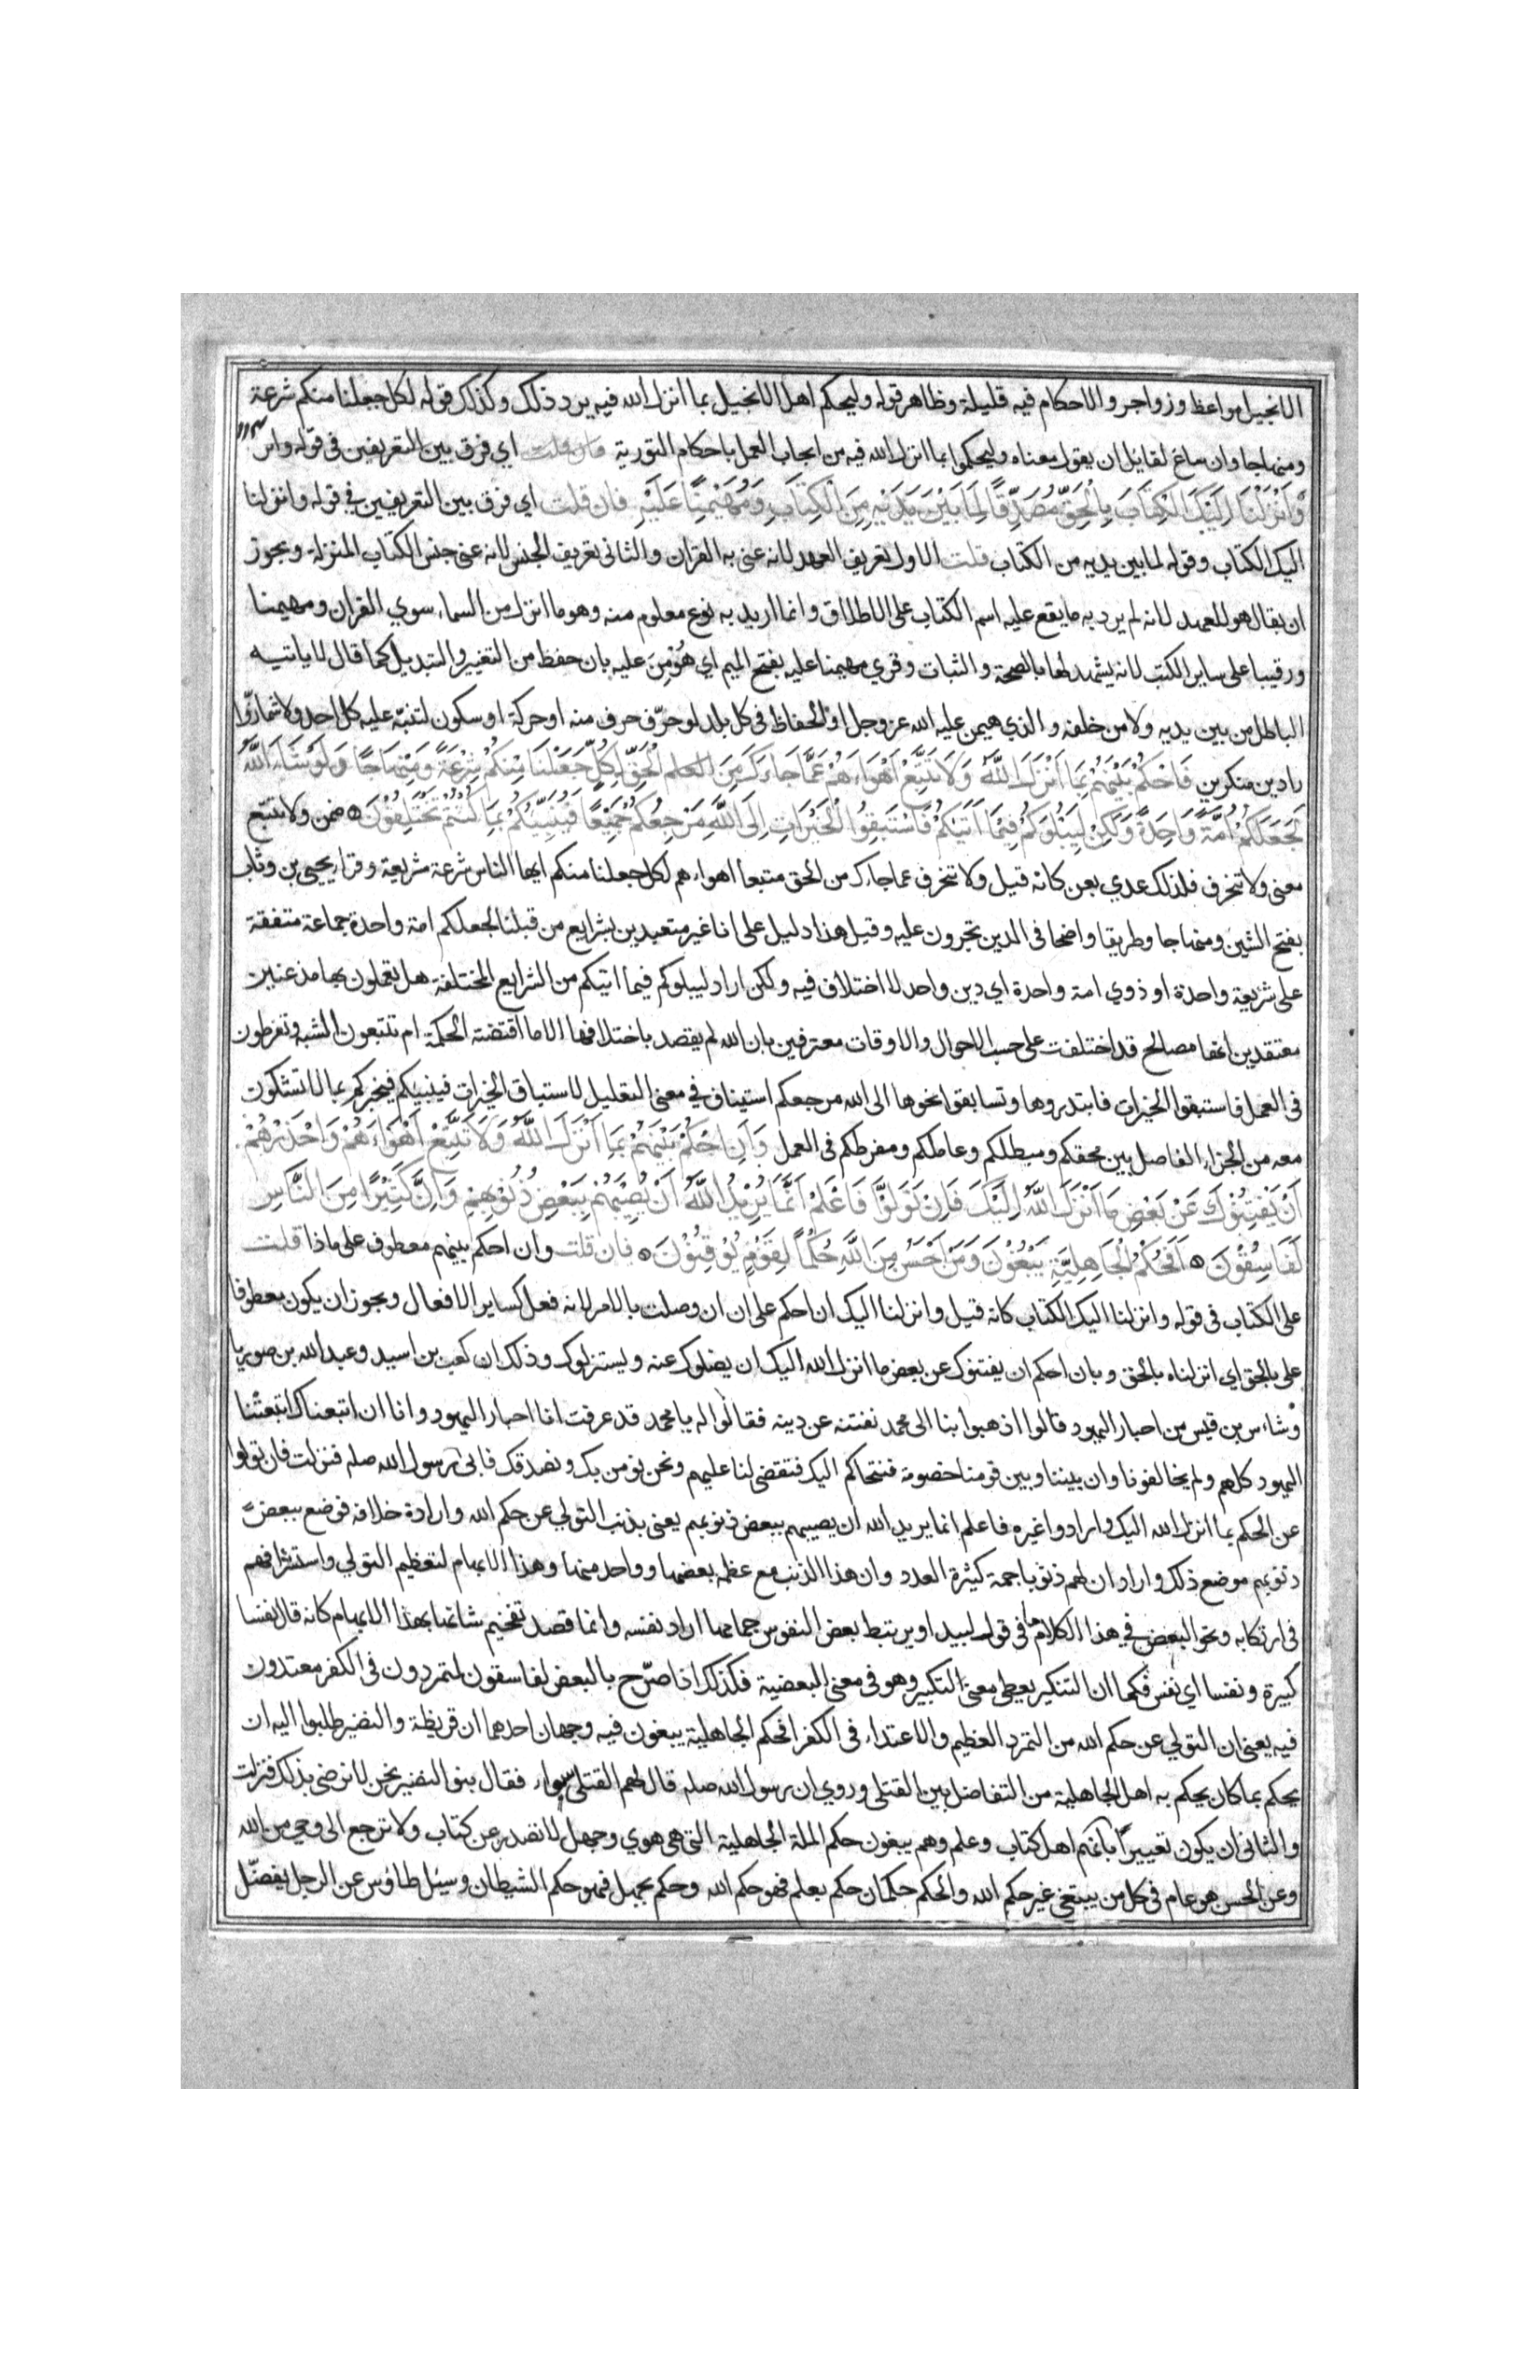 الانجيل مواعظ وزواجر والاحكام فيه قليلة وظاهر قوله وليحكم اهل الانجيل بما انزل الله فيه يرد ذلك وكذلك قوله لكل جعلنا منكم شرعة
ومنهاجا وان ساغ لقايل ان يقول معناه وليحكموا بما انزل الله فيه من ايجاب العمل باحكام التورية فان قلت اي فرق بين التعريفين في قوله وانز
وَأَنْزَلْنَا إِلَيْكَ الْكِتَابَ بِالْحَقِّ مُصَدِّقًا لِمَا بَيْنَ يَدَيْهِ مِنَ الْكِتَابِ وَمُهَيْمِنًا عَلَيْهِ فان قلت اي فرق بين التعريفين في قوله وانزلنا
اليك الكتاب وقوله لما بين يديه من الكتاب قلت الاول تعريف العهد لانه عنى به القران والثاني تعريف الجنس لانه عنى جنس الكتاب المنزلة ويجوز
ان يقال هو للعهد لانه لم يرد به ما يقع عليه اسم الكتاب على الاطلاق وانما اريد به نوع معلوم منه وهو ما انزل من السماء سوي القران ومهيمنا
ورقيبا على ساير الكتب لانه يشهد لها بالصحة والثبات وقري مهيمنا عليه بفتح الميم اي هُوْمِنَ عليه بان حفظ من التغيير والتبديل كما قال لا ياتيه
الباطل من بين يديه ولا من خلفه والذي هيمن عليه الله عز وجل او الحفاظ في كل بلد لو حرّف حرف منه او حركة او سكون لتنبّه عليه كل احد ولاشمازّوا
رادين منكرين فَاحْكُمْ بَيْنَهُمْ بِمَا أَنْزَلَ اللَّهُ وَلَا تَتَّبِعْ أَهْوَاءَهُمْ عَمَّا جَاءَكَ مِنَ العلم الْحَقِّ لِكُلٍّ جَعَلْنَا مِنْكُمْ شِرْعَةً وَمِنْهَاجًا وَلَوْ شَاءَ اللَّهُ
لَجَعَلَكُمْ أُمَّةً وَاحِدَةً وَلَكِنْ لِيَبْلُوَكُمْ فِيمَا آتَيكُمْ فَاسْتَبِقُوا الْخَيْرَاتِ إِلَى اللَّهِ مَرْجِعُكُمْ جَمِيعًا فَيُنَبِّئُكُمْ بِمَا كُنْتُمْ تَخْتَلِفُوْنَ ضمن ولا تتبع
معنى ولا تنحرف فلذلك عدي بعن كانه قيل ولا تنحرف عما جاءك من الحق متبعا اهواءهم لكل جعلنا منكم ايها الناس شرعة شريعة وقراء يحيى بن وثاب
بفتح الشين ومنهاجا وطريقا واضحا في الدين تجرون عليه وقيل هذا دليل على انا غير متعبدين بشرايع من قبلنا لجعلكم امة واحدة جماعة متفقة
على شريعة واحدة او ذوي امة واحدة اي دين واحد لا اختلاف فيه ولكن اراد ليبلوكم فيما اتيكم من الشرايع المختلفة هل تعملون بها مذعنين
معتقدين انها مصالح قد اختلفت على حسب الاحوال والاوقات معترفين بان الله لم يقصد باختلافها الا ما اقتضته الحكمة ام تتبعون الشبه وتفرطون
في العمل فاستبقوا الخيرات فابتدروها وتسابقوا نحوها الى الله مرجعكم استيناف في معنى التعليل لاستباق الخيرات فينبيكم فيخبركم بما لا تشكون
معه من الجزاء الفاصل بين محقكم ومبطلكم وعاملكم ومفرطكم في العمل وَأَنِ احْكُمْ بَيْنَهُمْ بِمَا أَنْزَلَ اللَّهُ وَلَا تَتَّبِعْ أَهْوَاءَهُمْ وَاحْذَرْهُمْ
أَنْ يَفْتِنُوْكَ عَنْ بَعْضِ مَا أَنْزَلَ اللَّهُ إِلَيْكَ فَإِنْ تَوَلَّوْا فَاعْلَمْ أَنَّمَا يُرِيْدُ اللَّهُ أَنْ يُصِيْبَهُمْ بِبَعْضِ ذُنُوْبِهِمْ وَإِنَّ كَثِيْرًا مِنَ النَّاسِ
لَفَاسِقُوْنَ أَفَحُكْمَ الْجَاهِلِيَّةِ يَبْغُوْنَ وَمَنْ أَحْسَنُ مِنَ اللَّهِ حُكْمًا لِقَوْمٍ يُوْقِنُوْنَ فان قلت وان احكم بينهم معطوف على ماذا قلت
على الكتاب في قوله وانزلنا اليك الكتاب كانه قيل وانزلنا اليك ان احكم على ان ان وصلت بالامر لانه فعل كساير الافعال ويجوز ان يكون معطوفا
على بالحق اي انزلناه بالحق وبان احكم ان يفتنوك عن بعض ما انزل الله اليك ان يضلوك عنه ويستزلوك وذلك ان كعب بن اسيد وعبد الله بن صوريا
وشاءس بن قيس من احبار اليهود قالوا اذهبوا بنا الى محمد نفتنه عن دينه فقالوا له يا محمد قد عرفت انا احبار اليهود وانا ان اتبعناك اتبعتنا
اليهود كلهم ولم يخالفونا وان بيننا وبين قومنا خصومة فنتحاكم اليك فتقضي لنا عليهم ونحن نومن بك ونصدقك فابى رسول الله صلم فنزلت فان تولوا
عن الحكم بما انزل الله اليك وارادوا غيره فاعلم انما يريد الله ان يصيبهم ببعض ذنوبهم يعني بذنب التولي عن حكم الله وارادة خلافه فوضع ببعض
ذنوبهم موضع ذلك واراد ان لهم ذنوبا جمة كثيرة العدد وان هذا الذنب مع عظمه بعضها وواحد منها وهذا الابهام لتعظيم التولي واستشرافهم
في ارتكابه ونحو البعض في هذا الكلام ما في قول لبيد او يرتبط بعض النفوس حمامها اراد نفسه وانما قصد تفخيم شانها بهذا الابهام كانه قال نفسا
كبيرة ونفسا اي نفس فكما ان التنكير يعطي معنى التكبير وهو في معنى البعضية فكذلك اذا صرّح بالبعض لفاسقون لمتمردون في الكفر معتدون
فيه يعني ان التولي عن حكم الله من التمرد العظيم والاعتداء في الكفر افحكم الجاهلية يبغون فيه وجهان احدهما ان قريظة والنضير طلبوا اليه ان
يحكم بما كان يحكم به اهل الجاهلية من التفاضل بين القتلى وروي ان رسول الله صلم قال لهم القتلى سواء فقال بنو النضير نحن لا نرضى بذلك فنزلت
والثاني ان يكون تعييراً بانهم اهل كتاب وعلم وهم يبغون حكم الملة الجاهلية التي هي هوي وجهل لا تصدر عن كتاب ولا ترجع الى وحي من الله
وعن الحسن هو عام في كل من يبتغي غير حكم الله والحكم حكمان حكم بعلم فهو حكم الله وحكم بجهل فهو حكم الشيطان وسيل طاؤس عن الرجل يفضّل